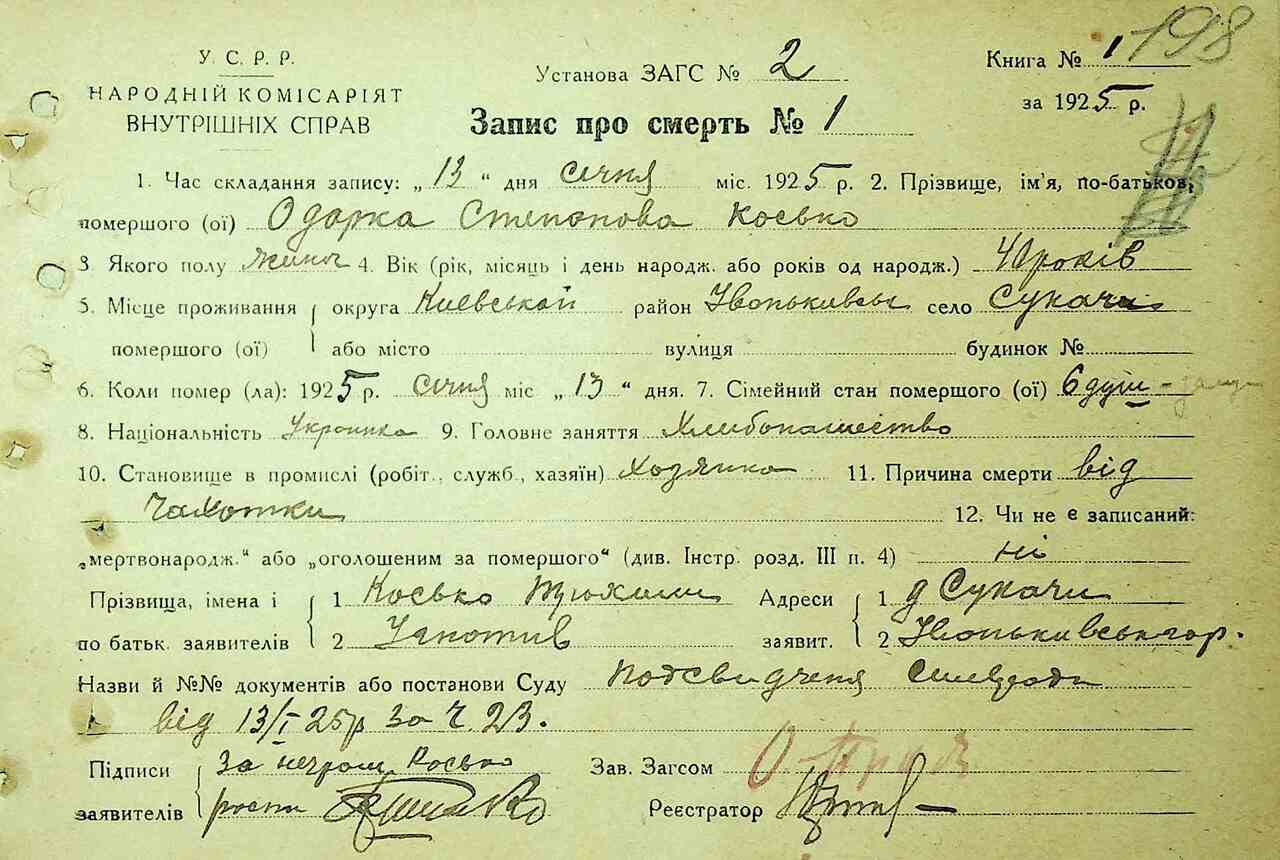 198
У. С. Р. Р.
НАРОДНІЙ КОМІСАРІЯТ
ВНУТРІШНІХ СПРАВ
Установа ЗАГС № 2
Книга № 1
за 1925 р.
Запис про смерть № 1
1. Час складання запису: „ 13 “ дня січня міс. 1925 р. 2. Прізвище, ім’я, по-батьков,
помершого (ої) Одарка Степанова Коська
3 Якого полу жіноч 4. Вік (рік, місяць і день народж. або років од народж.) років
5. Місце проживання округа Киевськой район село Сукачи
помершого (ої) або місто вулиця будинок №
6. Коли помер (ла): 1925 р. січня міс „ 13 “ дня. 7. Сімейний стан помершого (ої) 6 душ -
8. Національність Украинка 9. Головне заняття Хлибопашество
10. Становище в промислі (робіт., служб., хазяїн) Хозяйка 11. Причина смерти від
Чахотки 12. Чи не є записаний:
„мертвонародж.“ або „оголошеним за помершого“ (див. Інстр. розд. III п. 4) ні
Прізвища, імена і 1 Косько Адреси 1 д Сукачи
по батьк. заявителів 2 заявит. 2
Назви й №№ документів або постанови Суду
від 13/I 25р за ч. 23.
Підписи за Косько Зав. Загсом
заявителів Реєстратор